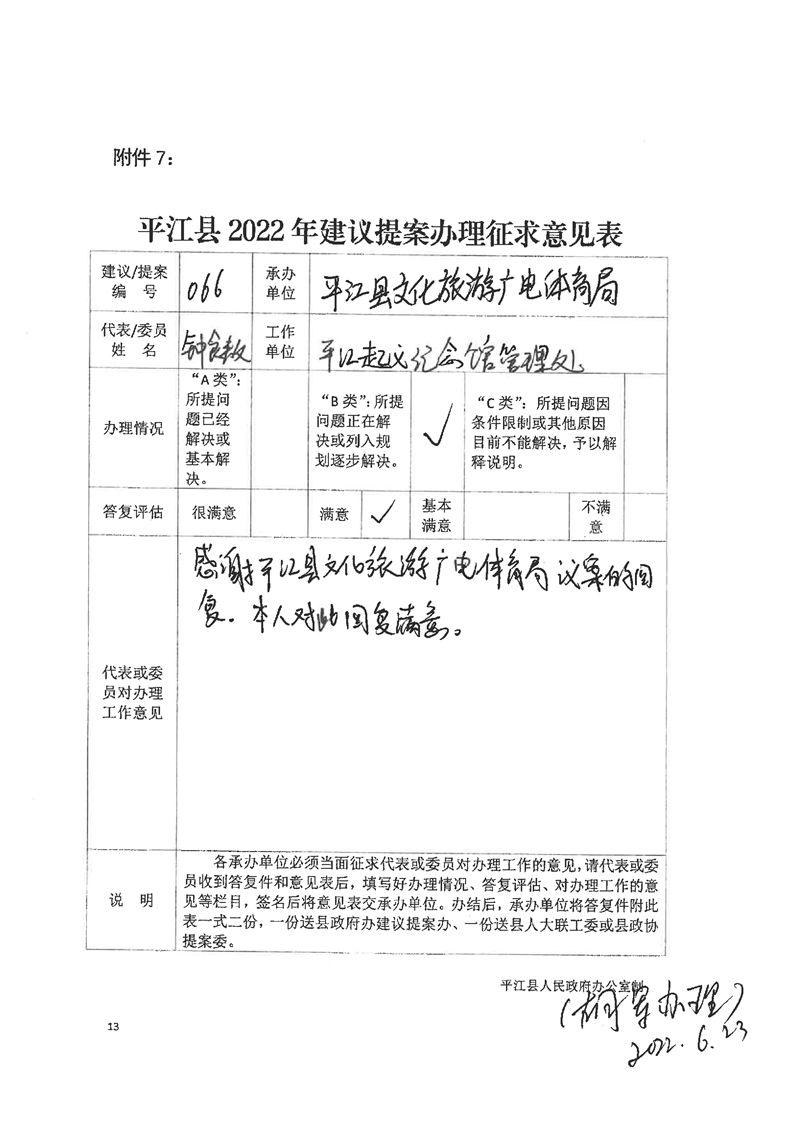 附件 7：
平江县 2022 年建议提案办理征求意见表
建议/提案
编 号
066
承办
单位
平江县文化旅游广电体育局
代表/委员
姓 名
工作
单位
平江起义纪念馆管理处
办理情况
“A 类”：
所提问
题已经
解决或
基本解
决。
“B 类”：所提
问题正在解
决或列入规
划逐步解决。
✓
“C 类”：所提问题因
条件限制或其他原因
目前不能解决，予以解
释说明。
答复评估
很满意
满意
✓
基本
满意
不满
意
代表或委
员对办理
工作意见
感谢平江县文化旅游广电体育局议案的回
复。本人对此回复满意。
说 明
各承办单位必须当面征求代表或委员对办理工作的意见，请代表或委
员收到答复件和意见表后，填写好办理情况、答复评估、对办理工作的意
见等栏目，签名后将意见表交承办单位。办结后，承办单位将答复件附此
表一式二份，一份送县政府办建议提案办、一份送县人大联工委或县政协
提案委。
平江县人民政府办公室制
办理）
2022.6.23
13